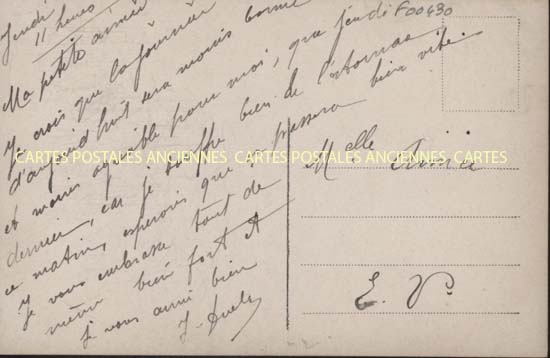 Jeudi
11 heures
Ma petite amie
je crois que la journée
d'aujourd'hui sera moins bonne
et moins agréable pour moi, que jeudi
dernier, car je souffre bien de l'estomac
ce matin, esperons que passera bien vite.
Je vous embrasse tout de
même bien fort et
vous aussi bien
F00430
Melle
E. V.
CARTES POSTALES ANCIENNES CARTES POSTALES ANCIENNES CARTES